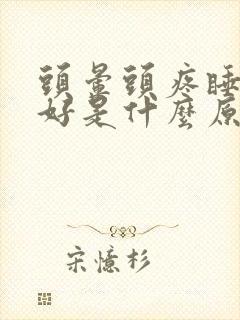 頭暈頭疼睡
好是什麼原
宋憶杉